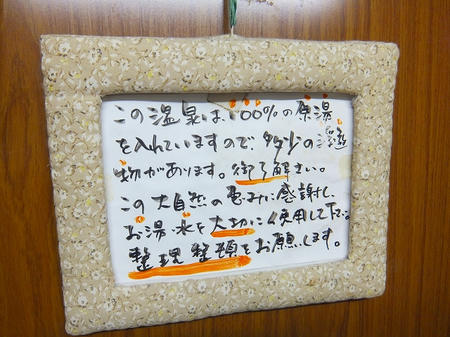 この温泉は、100%の原湯
を入れていますので、多少の浮遊
物があります。御了解さい。
この大自然の恵みに感謝し、
お湯・水を大切に使用して下さい。
整理整頓をお願いします。